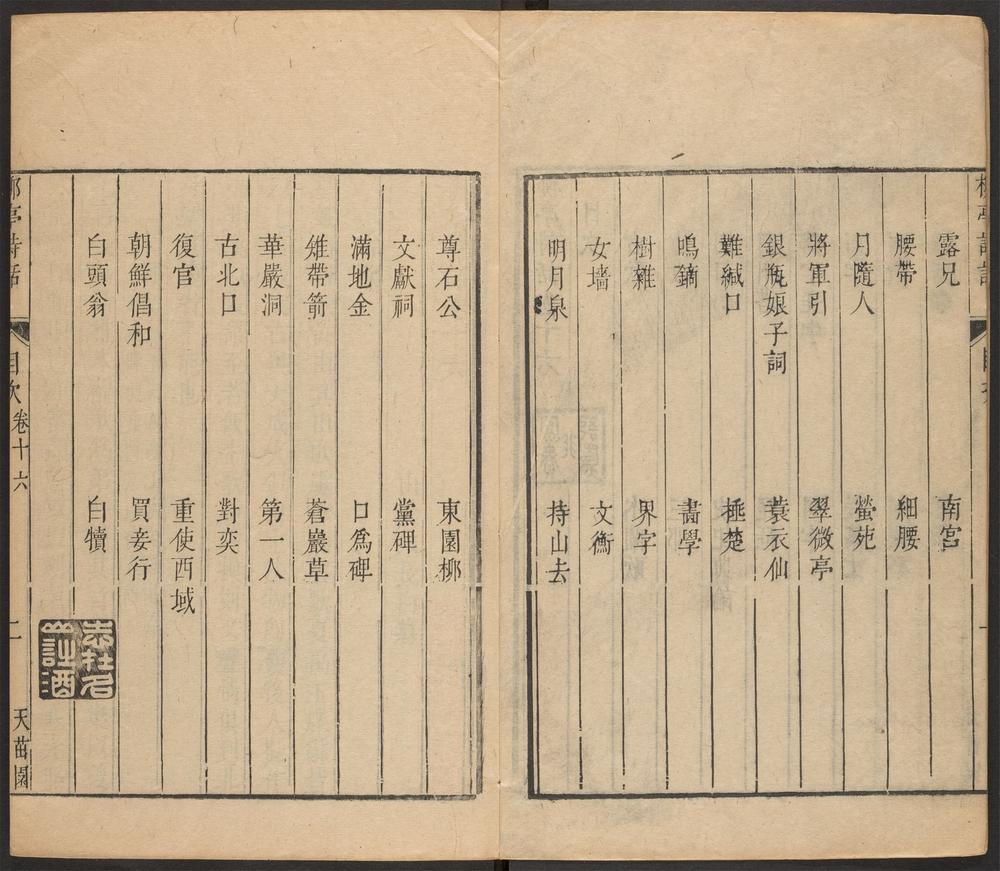 露兄 南宮
腰帶 細腰
月隨人 螢苑
將軍引 翠微亭
銀瓶娘子詞 蓑衣仙
難緘口 極楚
鳴鏑 畵學
樹雜 界字
女墻 文衡
明月泉 持山去
尊石公 東園柳
文獻祠 黨碑
滿地金 口爲碑
雉帶箭 蒼巖草
華嚴洞 第一人
古北口 對奕
復官 重使西域
朝鮮倡和 買妾行
白頭翁 白犢
亭詩話 目次 卷十六 二 天苗園